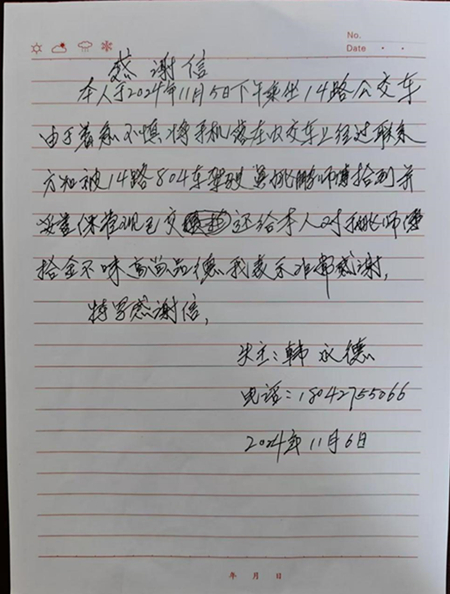 No.
Date . .
感谢信
本人于2024年11月5日下午乘坐14路公交车
由于着急不慎将手机落在公交车上经过联系
方知被14路804车驾驶员姚鹏师傅拾到并
妥善保管现已交还给本人对姚师傅
拾金不昧高尚品德我表示非常感谢,
特写感谢信,
失主:韩永德
电话:18042755066
2024年11月6日
年 月 日